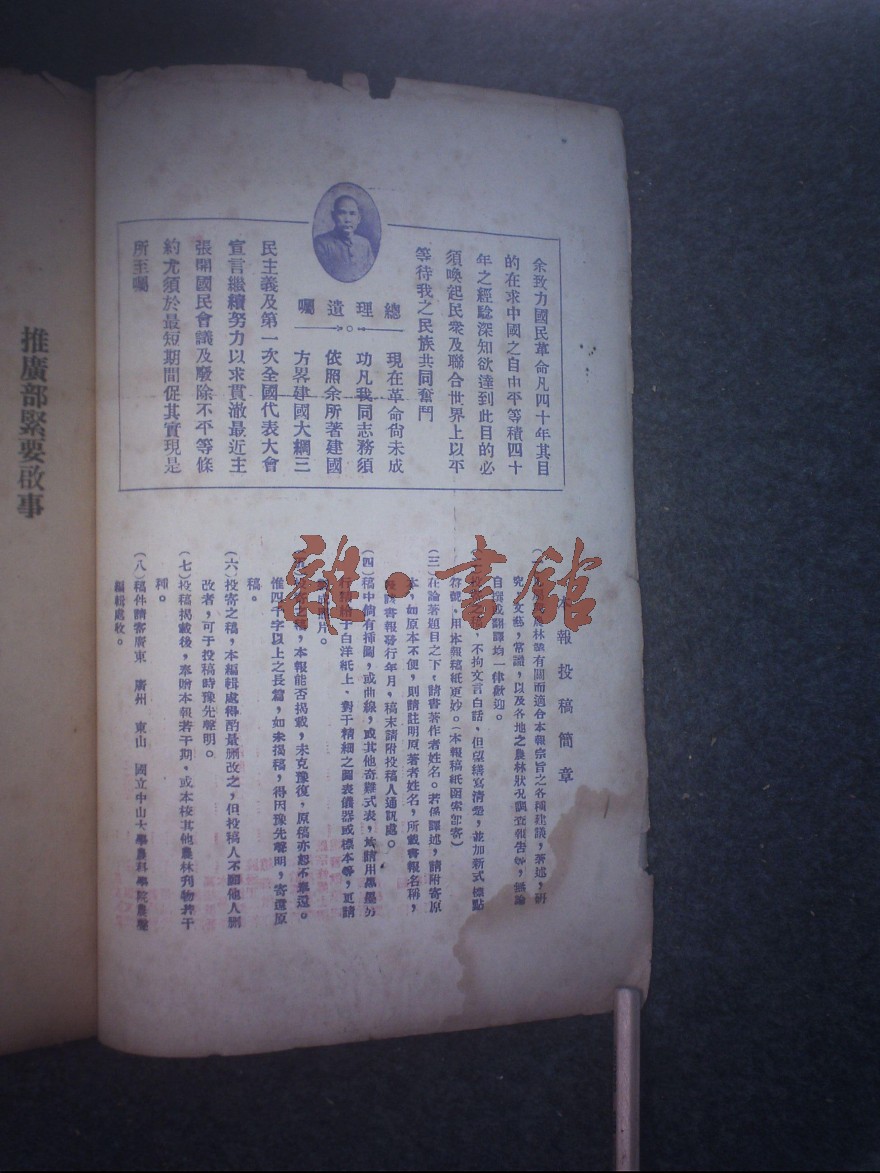 余致力國民革命凡四十年其目
的在求中國之自由平等積四十
年之經驗深知欲達到此目的必
須喚起民衆及聯合世界上以平
等待我之民族共同奮鬥
總理遺囑
現在革命尙未成
功凡我同志務須
依照余所著建國
方畧建國大綱三
民主義及第一次全國代表大會
宣言繼續努力以求貫澈最近主
張開國民會議及廢除不平等條
約尤須於最短期間促其實現是
所至囑
本報投稿簡章
農林 有關而適合本報宗旨之各種建議,著述,研
究,文藝,常識,以及各地之農林狀況調查報告等,無論
自撰或翻譯均一律歡迎。
不拘文言白話,但望繕寫清楚,並加新式標點
符號,用本報稿紙更妙。(本報稿紙函索卽寄)
(三)在論著題目之下,請書著作者姓名。若係譯述,請附寄原
本,如原本不便,則請註明原著者姓名,所載書報名稱,
書報發行年月,稿末請附投稿人通訊處。
(四)稿中倘有揷圖,或曲線,或其他奇難式表,
于白洋紙上、對于精細之圖表儀器或標本等,更請
片。
投寄之稿,本報能否揭載,未克豫復,原稿亦恕不奉還。
惟四千字以上之長篇,如未揭稿,得因豫先聲明,寄還原
稿。
(六)投寄之稿,本編輯處得酌量删改之,但投稿人不願他人删
改者,可于投稿時豫先聲明。
(七)投稿揭載後,奉贈本報若干期,或本校其他農林刋物若干
種。
(八)稿件請寄廣東 廣州 東山 國立中山大學農科學院農
編輯處收。
推廣部緊要啟事
雜·書館